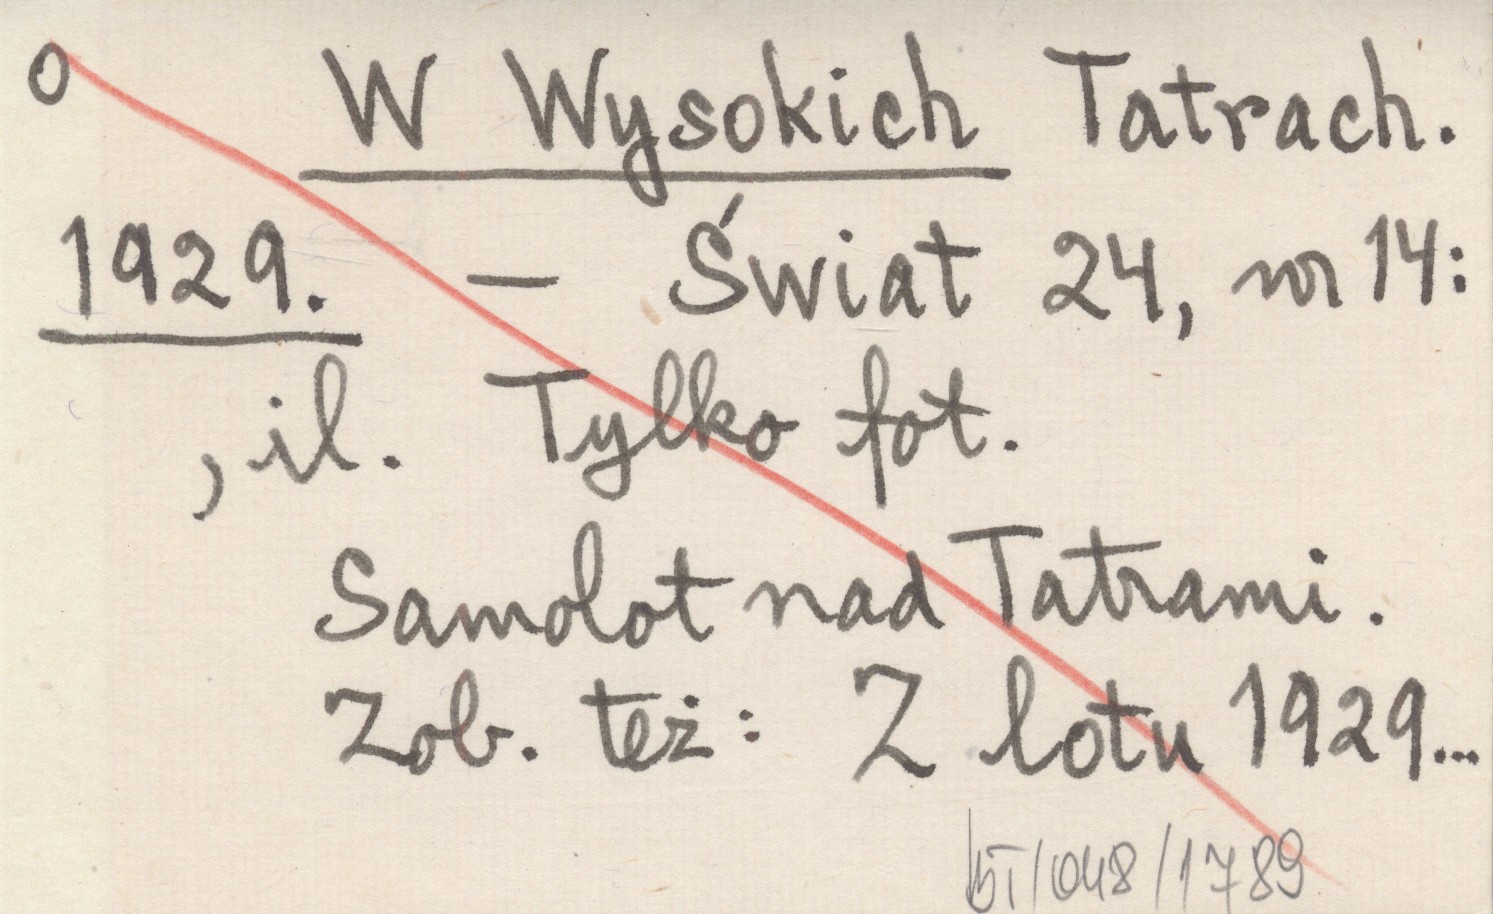 O W Wysokich Tatrach.
1929. — Świat 24, nr 14:
, il. Tylko fot.
Samolot nad Tatrami.
Zob. też: Z lotu 1929...
/048/1789